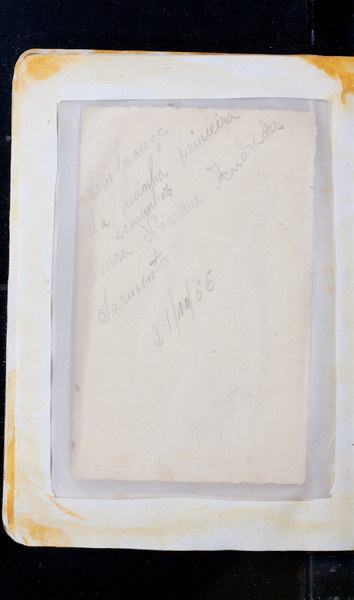 Lembrança
da minha primeira
comunhão
Neusa Andrades
Sarmento.
24/10/55